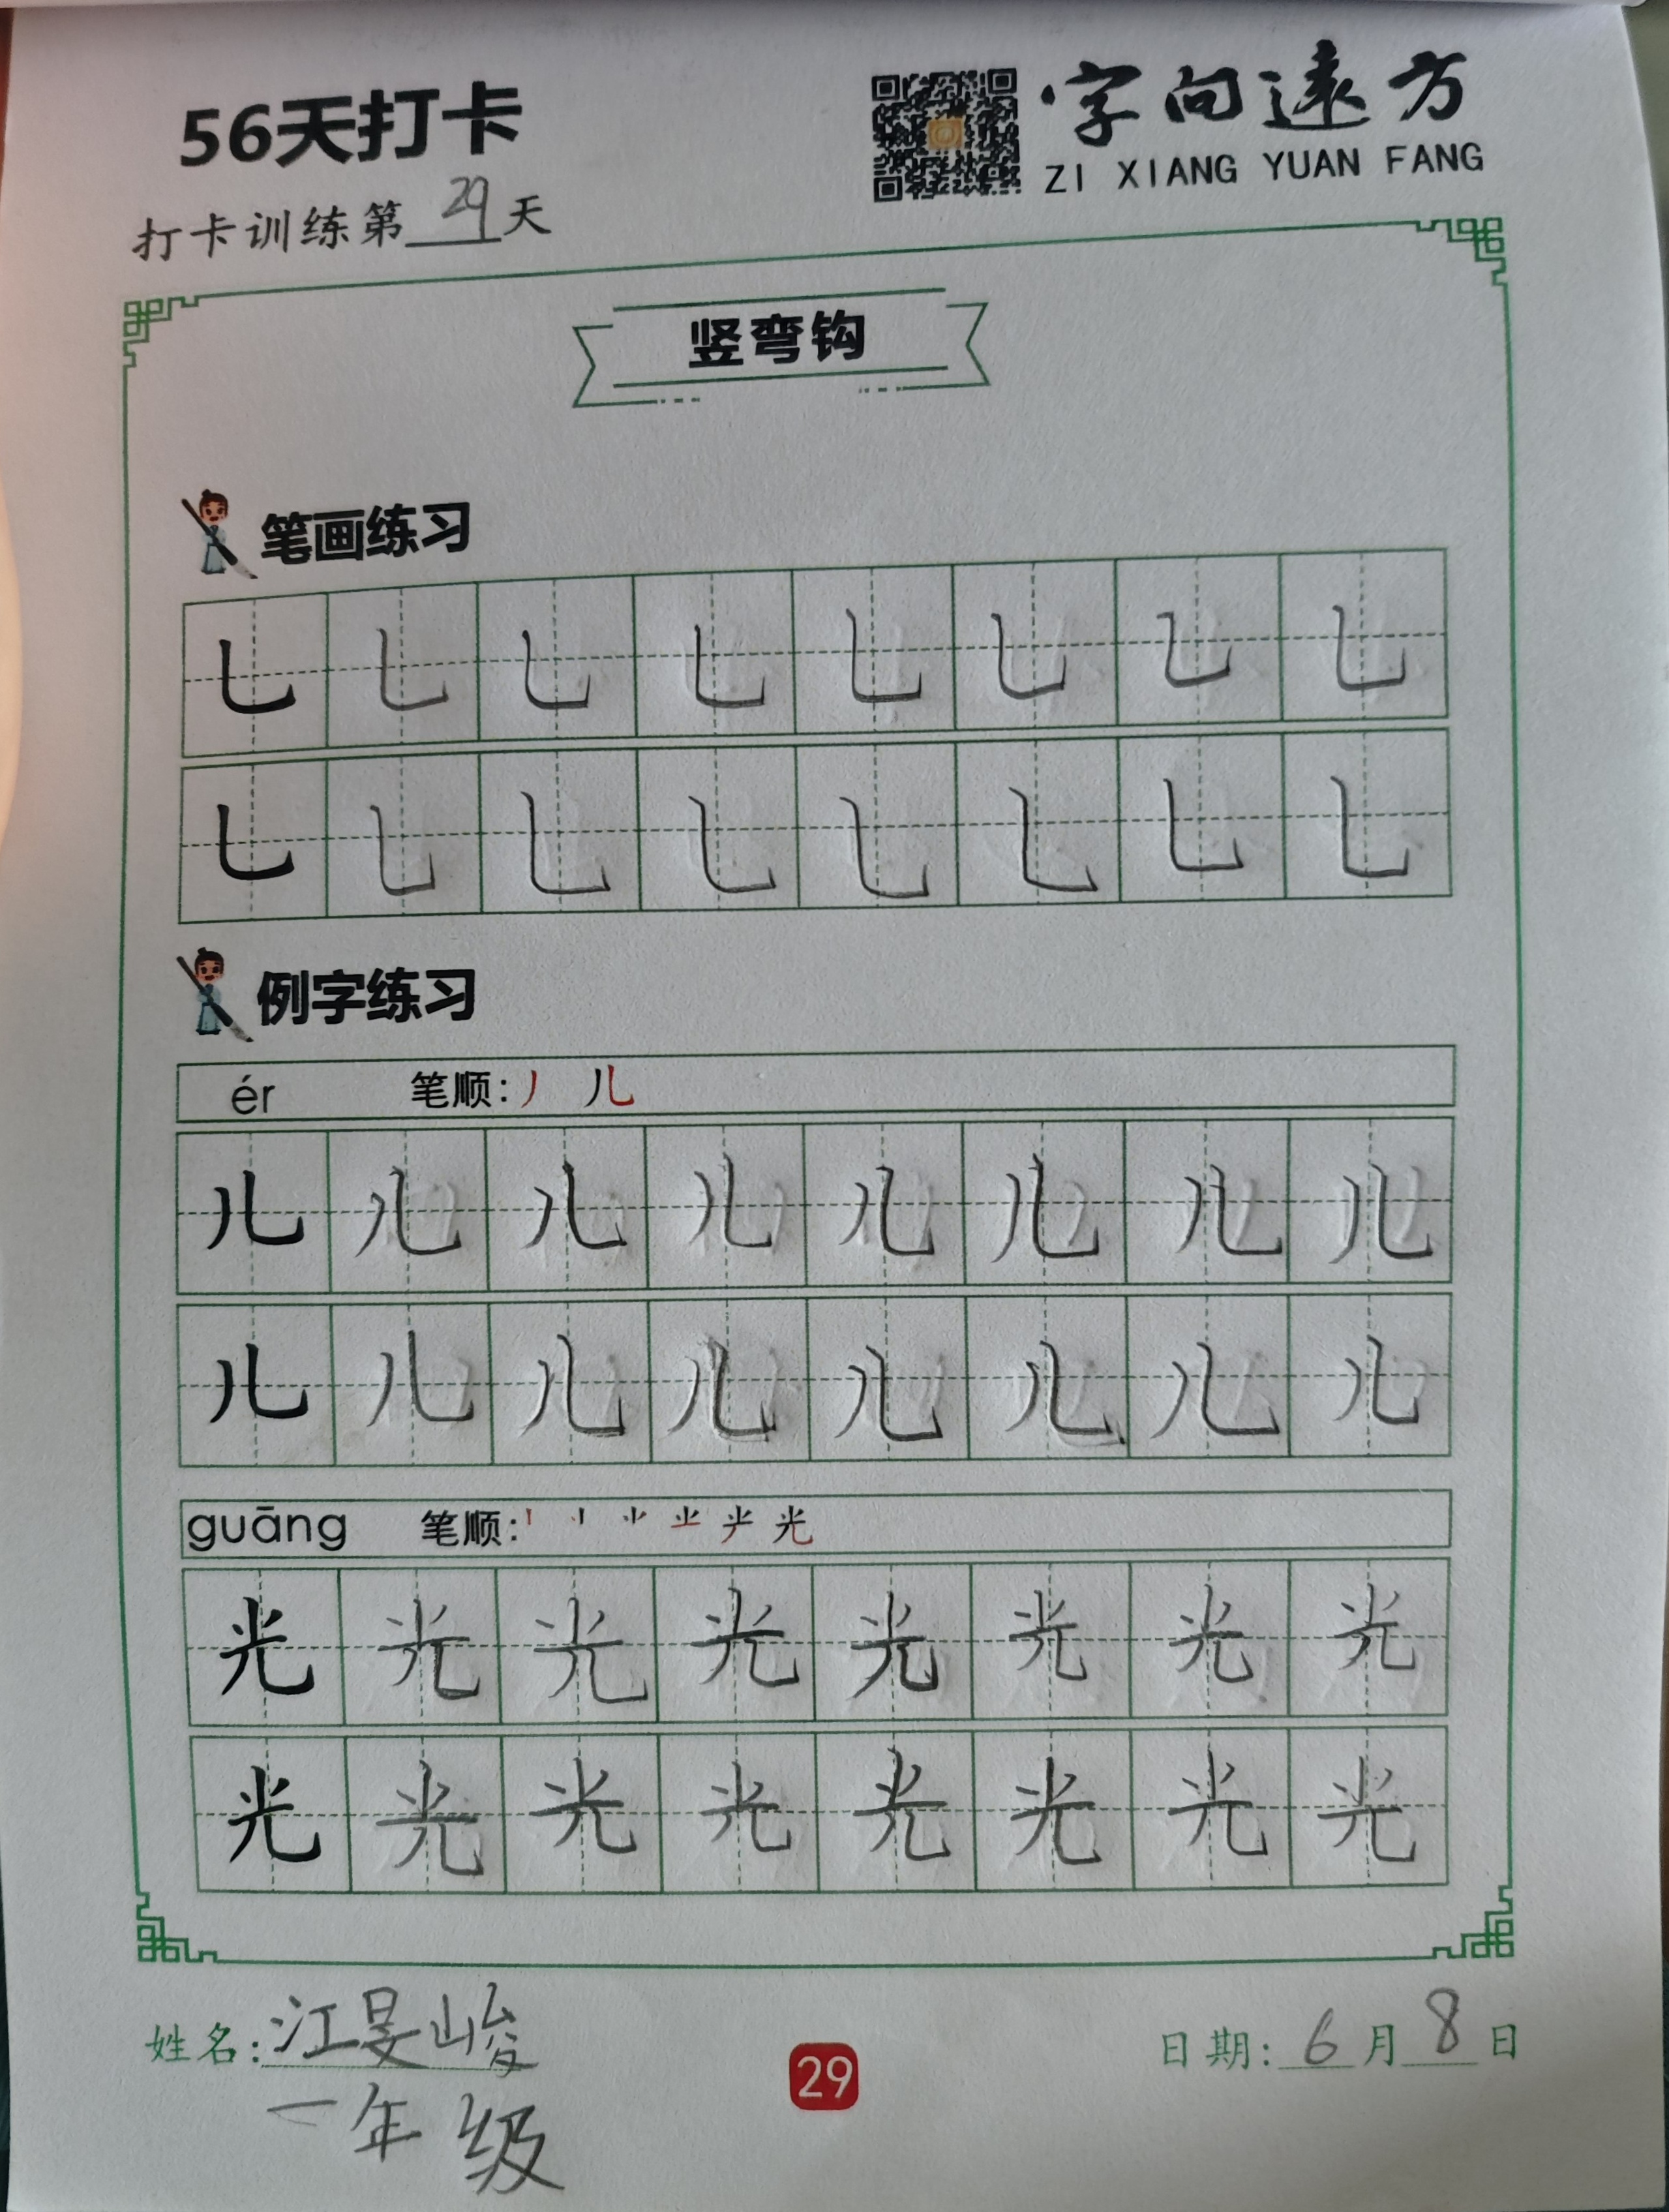 56天打卡
字向遠方
ZI XIANG YUAN FANG
打卡训练第29天
竖弯钩
笔画练习
㇟ ㇟ ㇟ ㇟ ㇟ ㇟ ㇟ ㇟
㇟ ㇟ ㇟ ㇟ ㇟ ㇟ ㇟ ㇟
例字练习
ér 笔顺: 丿 儿
儿 儿 儿 儿 儿 儿 儿 儿
儿 儿 儿 儿 儿 儿 儿 儿
guāng 笔顺: 光
光 光 光 光 光 光 光 光
光 光 光 光 光 光 光 光
姓名: 江旻峻
29
日期: 6月8日
一年级